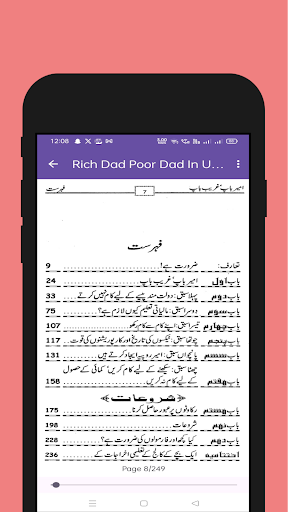 12:08
Rich Dad Poor Dad In U...
امیر باپ غریب باپ 7 فہرست
فہرست
تعارف: ضرورت ہے! 9
باب اول امیر باپ، غریب باپ 24
باب دوم پہلا سبق: دولت مند پیسے کے لیے کام نہیں کرتے 33
باب سوم دوسرا سبق: مالیاتی تعلیم کیوں لازم ہے؟ 75
باب چہارم تیسرا سبق: اپنے کام سے کام رکھو 107
باب پنجم چوتھا سبق: ٹیکسوں کی تاریخ اور کارپوریشنوں کی قوت 117
باب ششم پانچواں سبق: امیر روپیہ ایجاد کرتے ہیں 131
باب ہفتم چھٹا سبق: سیکھنے کے لیے کام کریں، کمائی کے حصول کے لیے کام نہ کریں 158
شروعات
باب ہشتم رکاوٹوں پر عبور حاصل کرنا 175
باب نہم شروعات 198
باب دہم کیا کچھ اور فارمولوں کی ضرورت ہے؟ 228
اختتامیہ ایک بچے کے کالج کے تعلیمی اخراجات کے 236
Page 8/249